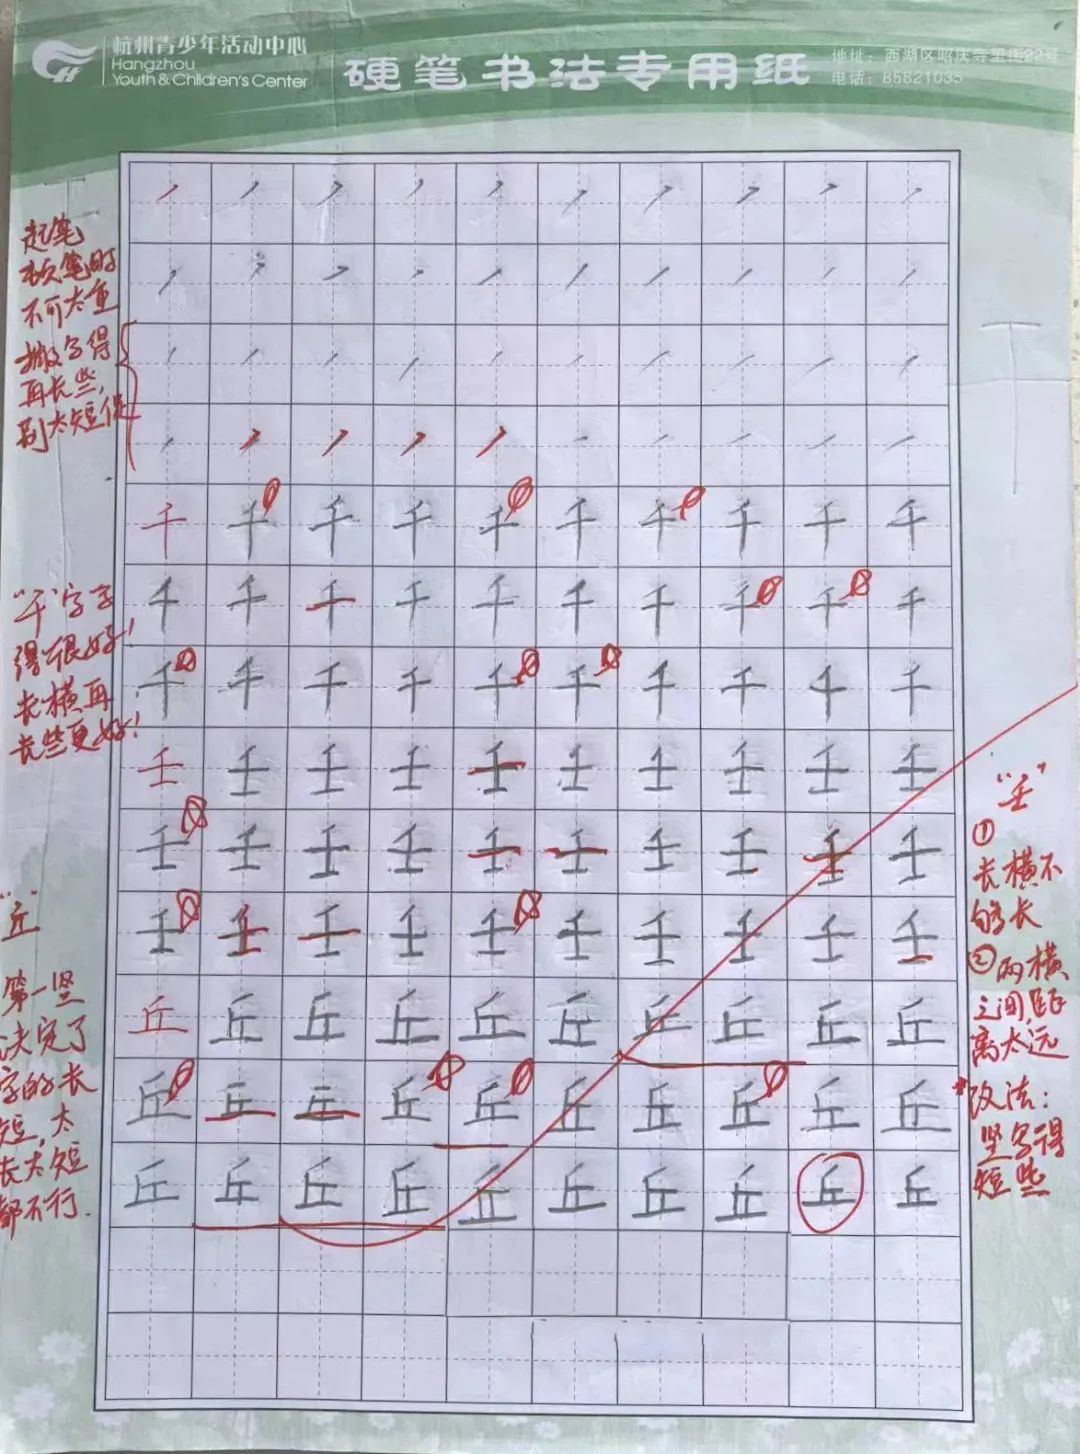 杭州青少年活动中心
Hangzhou
Youth & Children's Center
硬笔书法专用纸
地址：西湖区昭庆寺里街22号
电话：85821035
起笔
顿笔时
不可太重
撇写得
再长些，
别太短促
千 千 千 千 千 千 千 千 千 千
"千"字写
千 千 千 千 千 千 千 千 千 千
得很好！
千 千 千 千 千 千 千 千 千 千
长横再
长些更好！
壬 壬 壬 壬 壬 壬 壬 壬 壬 壬
壬 壬 壬 壬 壬 壬 壬 壬 壬 壬
壬 壬 壬 壬 壬 壬 壬 壬 壬 壬
丘 丘 丘 丘 丘 丘 丘 丘 丘 丘
丘 丘 丘 丘 丘 丘 丘 丘 丘 丘
丘 丘 丘 丘 丘 丘 丘 丘 丘 丘
"丘"
第一竖
决定了
字的长
短，太
长太短
都不行.
"壬"
①
长横不
够长
②两横
之间距
离太远
改法：
竖写得
短些